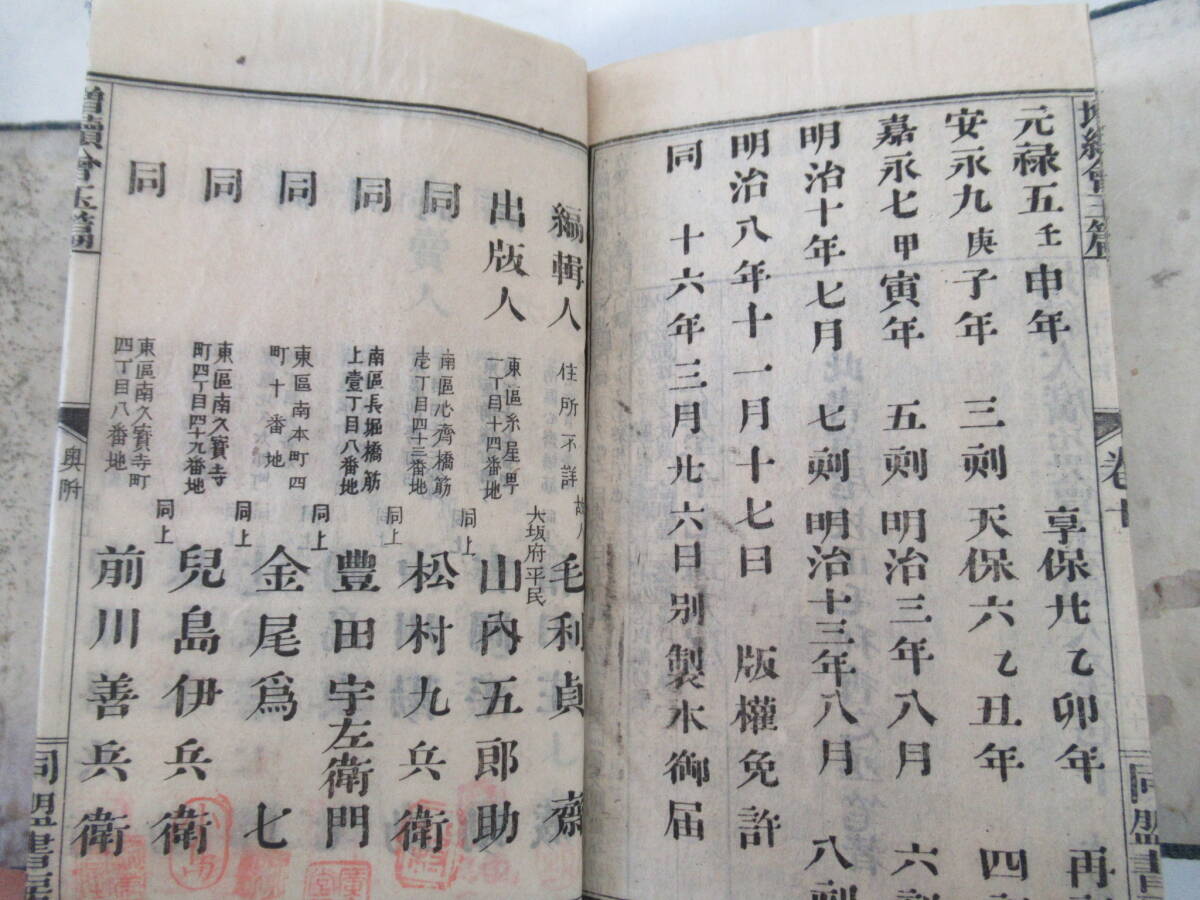 元禄五壬申年　享保廾乙卯年　再
安永九庚子年　三刻　天保六乙丑年　四
嘉永七甲寅年　五刻　明治三年八月　六
明治十年七月　七刻　明治十三年八月　八刻
明治八年十一月十七日　版權免許
同　十六年三月廾六日別製本御届
卷十
同盟書
編輯人　住所不詳　故人　毛利貞齋
出版人　東區糸屋町一丁目十四番地　大坂府平民　山內五郎助
同　南區心齊橋筋壱丁目四十三番地　同上　松村九兵衛
同　南區長堀橋筋上壹丁目八番地　同上　豊田宇左衛門
同　東區南本町四町十番地　同上　金尾爲七
同　東區南久寳寺町四丁目四十九番地　同上　兒島伊兵衛
同　東區南久寳寺町四丁目八番地　同上　前川善兵衛
增續會玉篇
奥附
同盟書